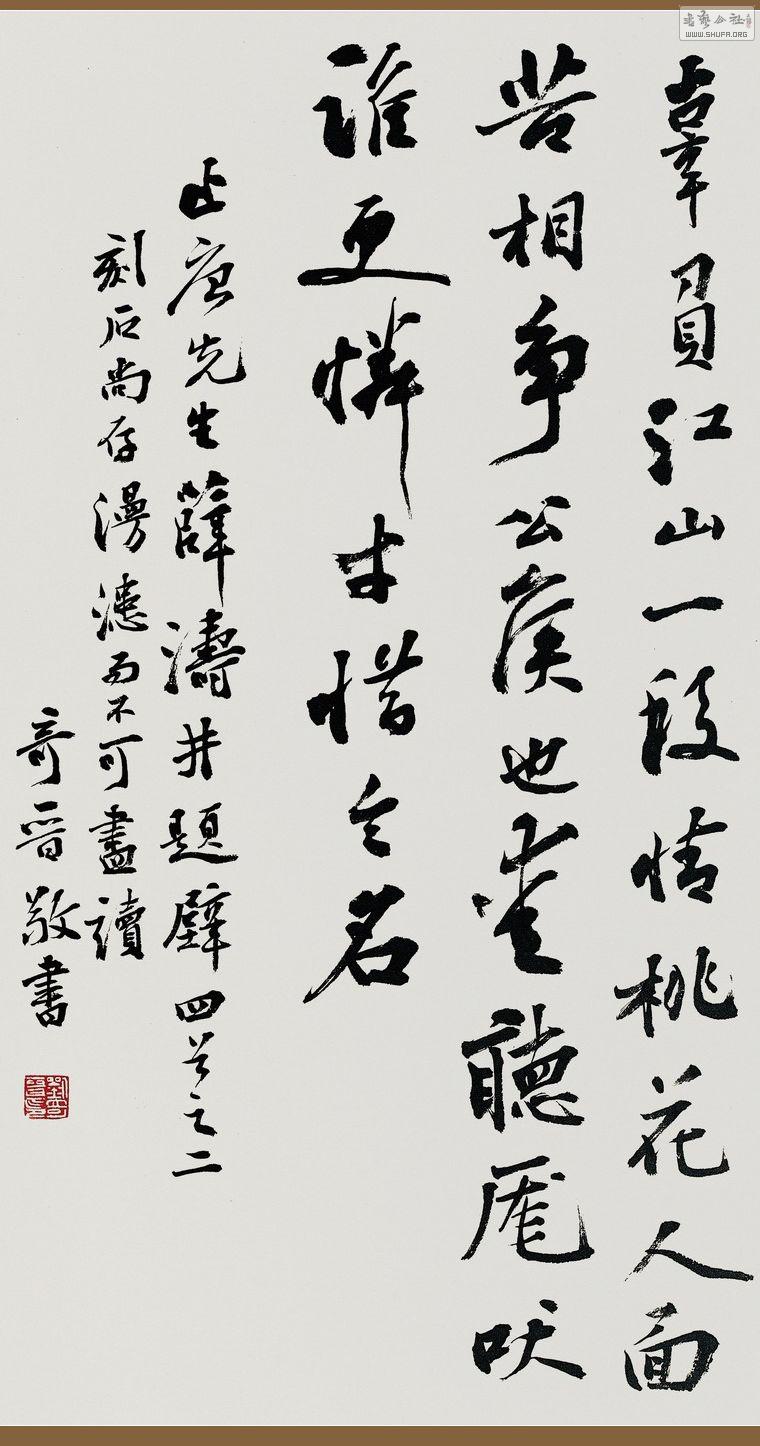 辜負江山一段情桃花人面
苦相爭公侯也愛聽厖吠
誰更憐才惜令名
止唐先生薛濤井題壁四首之二
刻石尚存漫漶而不可盡讀
奇晉敬書
劉奇晉印
書藝公社
WWW.SHUFA.ORG